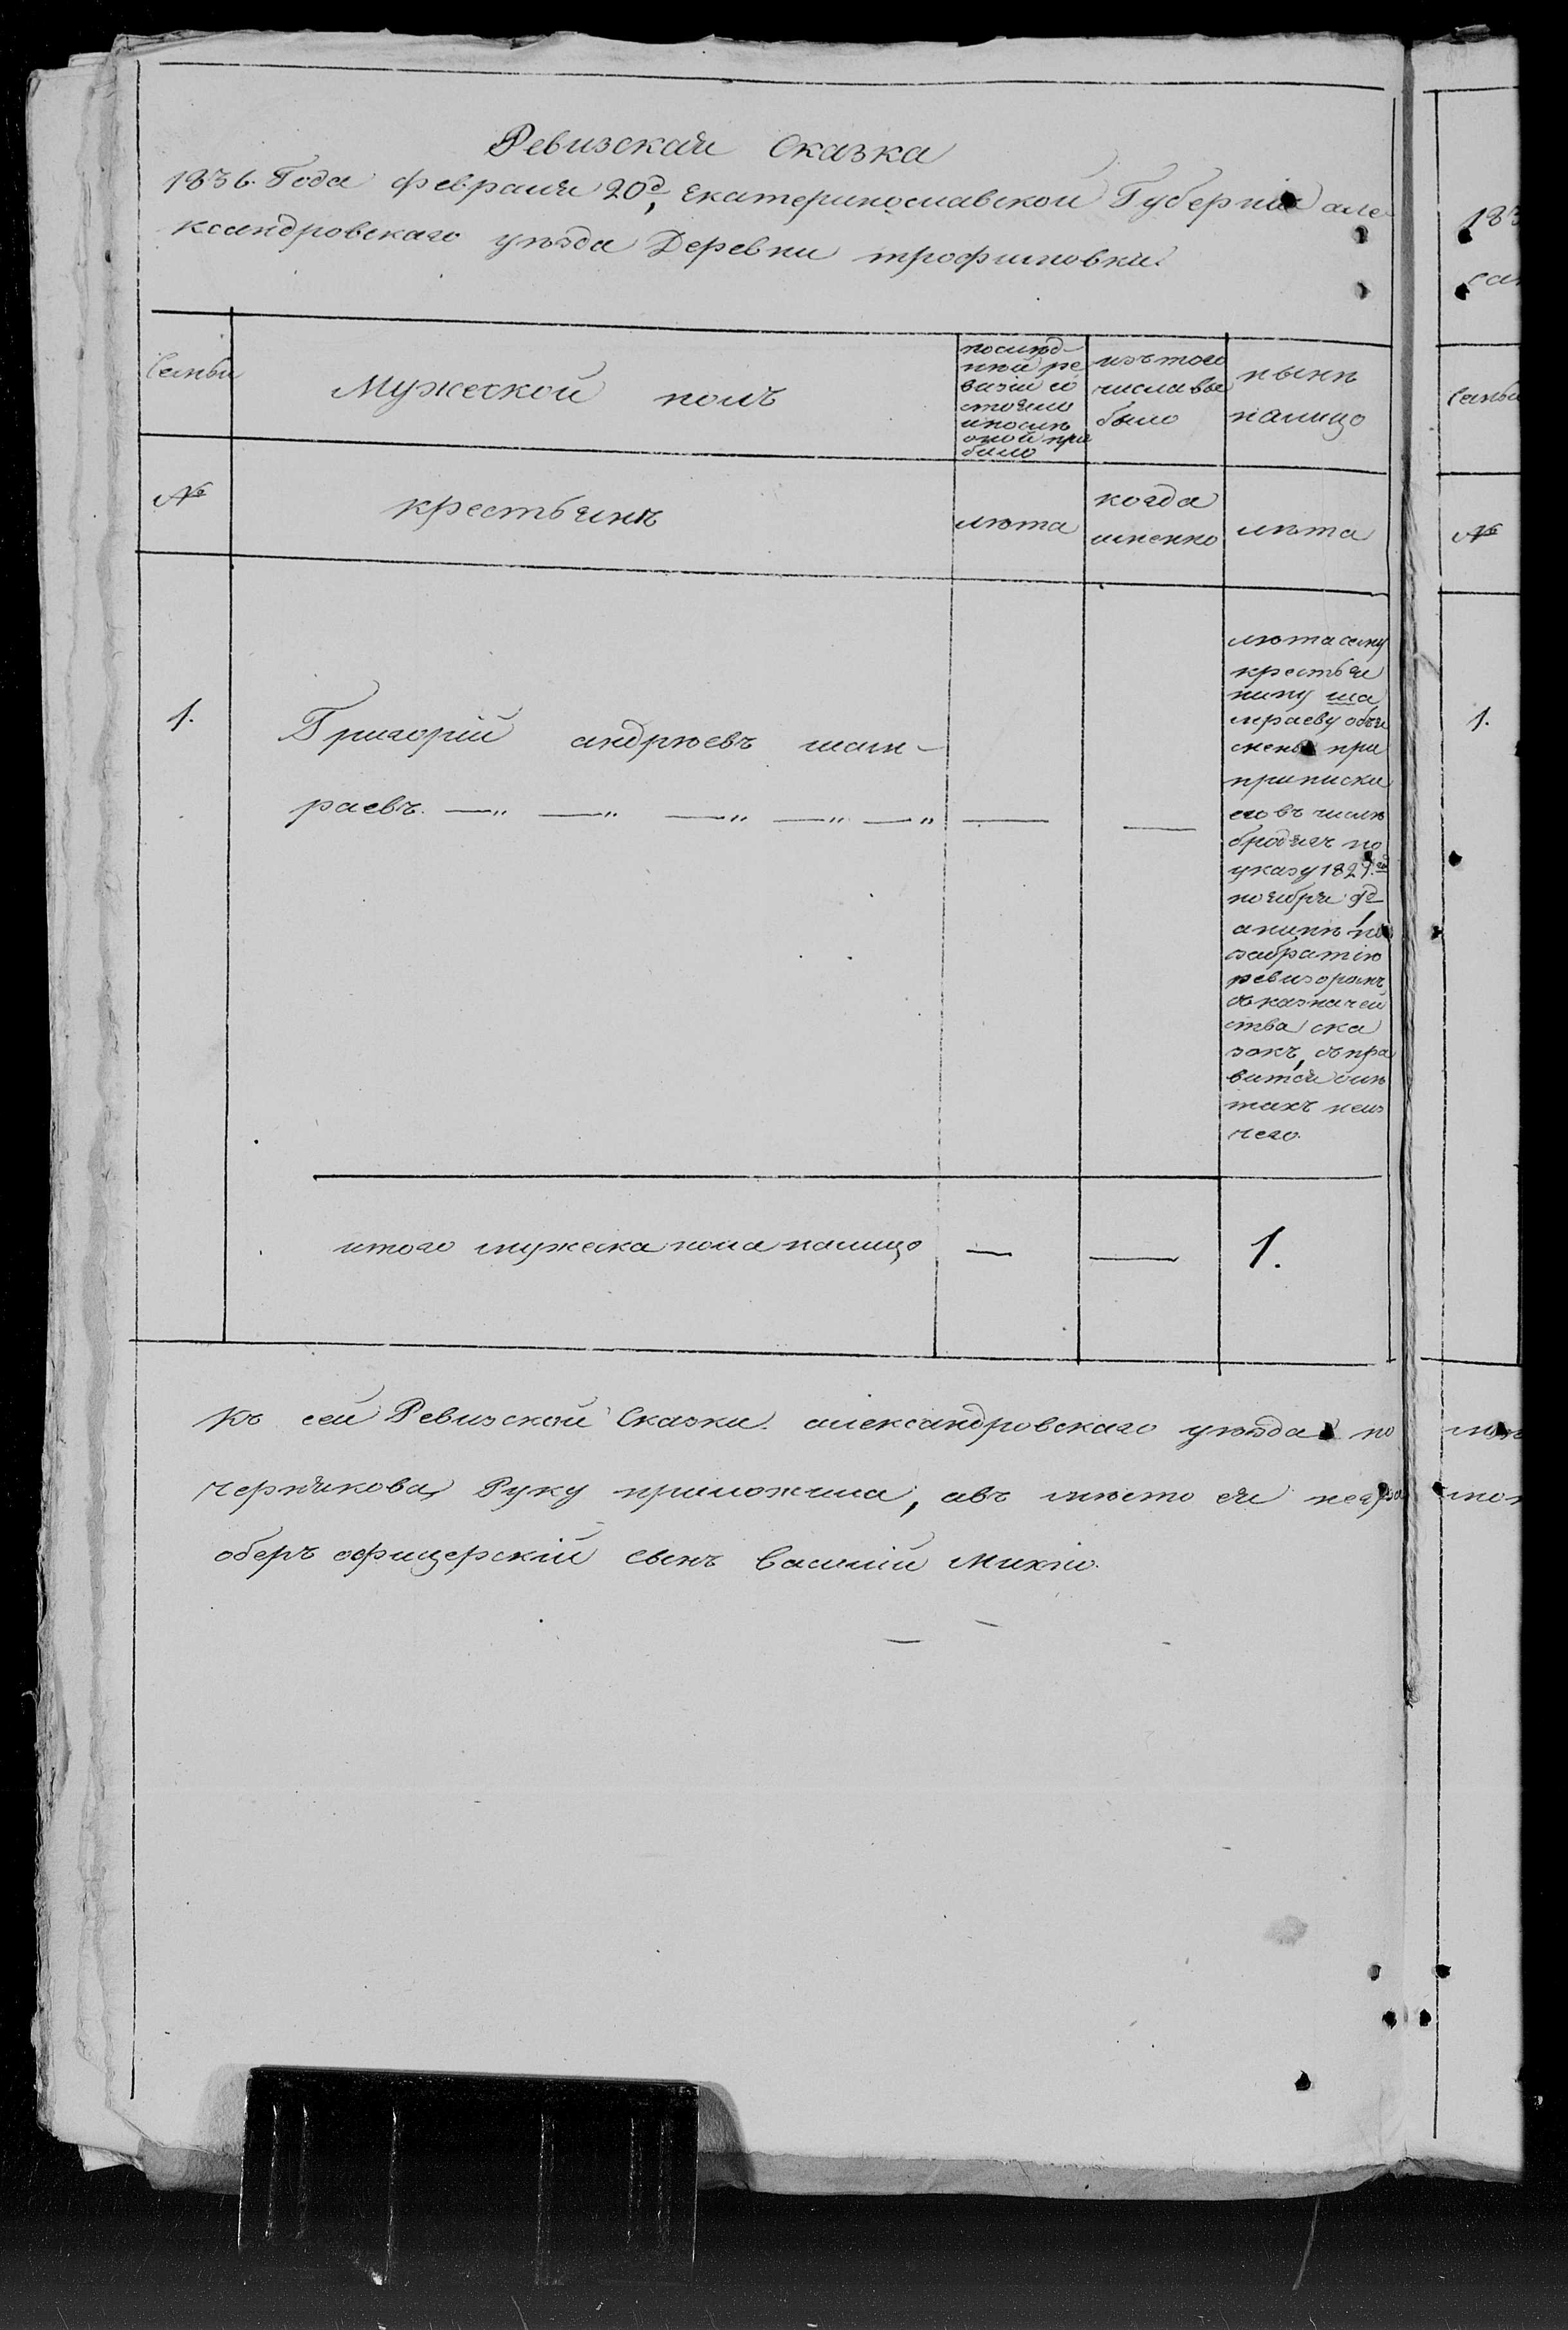 Ревизская Сказка
1836. Года февраля 20д, екатеринославской Губерніи але
ксандровскаго уѣзда Деревни трофимовки.
Семьи
Мужеской полъ
послѣд
ней ре
визіи со
стояло
и послѣ
оной при
было
изъ того
числа вы
было
нынѣ
налицо
№
крестьянъ
лѣта
когда
именно
лѣта
1.
Григорій андрѣевъ шам-
раевъ.
лѣта сему
крестья
нину ша
мраеву объя
снены при
приписки
его въ числѣ
бродягъ по
указу 1827.
ноября
а нынѣ по
забратію
ревизоромъ
съ казначей
ства ска
зокъ, съпра
вится о лѣ
тахъ неиз
чего.
итого мужеска пола налицо
1.
Къ сей Ревизской Сказки. александровскаго уѣзда по
чернякова Руку приложила, авъ мѣсто ея
оберъ офицерскій сынъ Василій
183
Семьи
№
1.